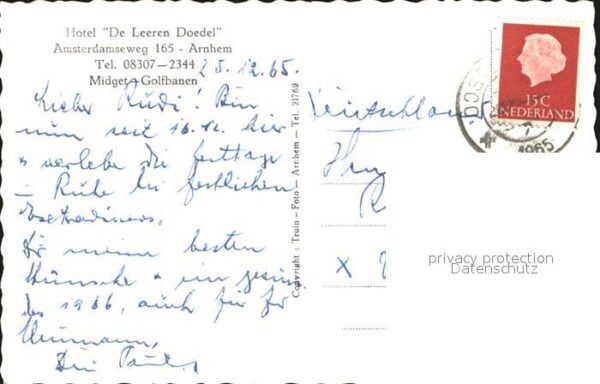 Hotel "De Leeren Doedel"
Amsterdamseweg 165 - Arnhem
Tel. 08307-2344
Midget-Golfbanen
25.12.65.
Lieber Rudi! Bin
nun seit 16.12. hier
+ verlebe die Festtage
in Ruhe bei festlichen
Dir meine besten
Wünsche + ein gesun
des 1966, auch für Fr
Neumann,
Dein
Copyright: Truin - Foto - Arnhem - Tel. 21769
Deutschland
Hrn
R
x 9
15C
NEDERLAND
1965
privacy protection
Datenschutz